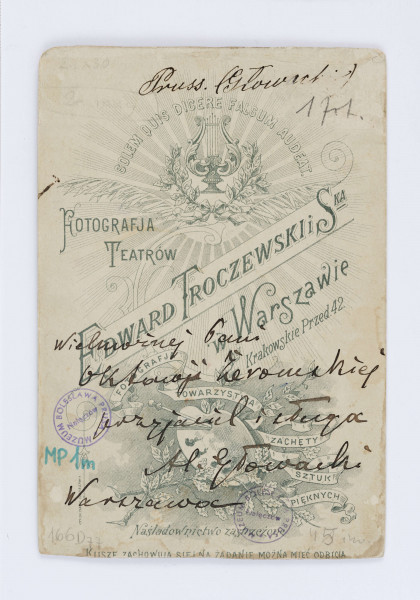 Pruss. (Głowacki)
1 fot.
SOLEM QUIS DICERE FALSUM AUDEAT.
FOTOGRAFJA
TEATRÓW
EDWARD TROCZEWSKI i SKA
w Warszawie
Krakowskie Przed. 42.
Wielmożnej Pani
FOTOGRAFJA
Oktawji Żeromskiej
TOWARZYSTWA
przyjaciel i sługa
ZACHĘTY
SZTUK
PIĘKNYCH
Al. Głowacki
Warszawa
MUZEUM BOLESŁAWA PRUSA
Nałęczów
MP 1m
Naśladownictwo zastrzeżone
KLISZE ZACHOWUJĄ SIĘ I NA ŻĄDANIE MOŻNA MIEĆ ODBICIA